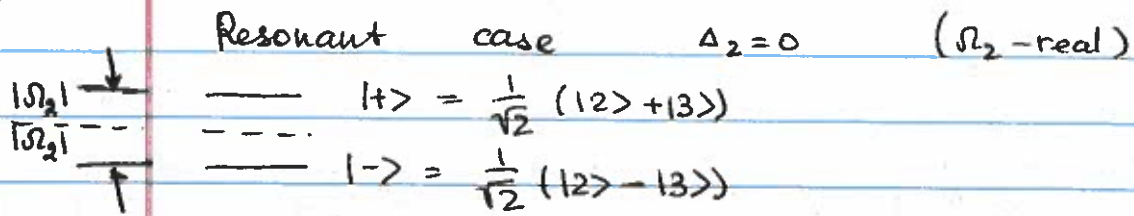 Resonant case Δ₂ = 0 (Ω₂ - real)
|Ω₂| |+> = 1/√2 (|2> + |3>)
|Ω₂| |-> = 1/√2 (|2> - |3>)